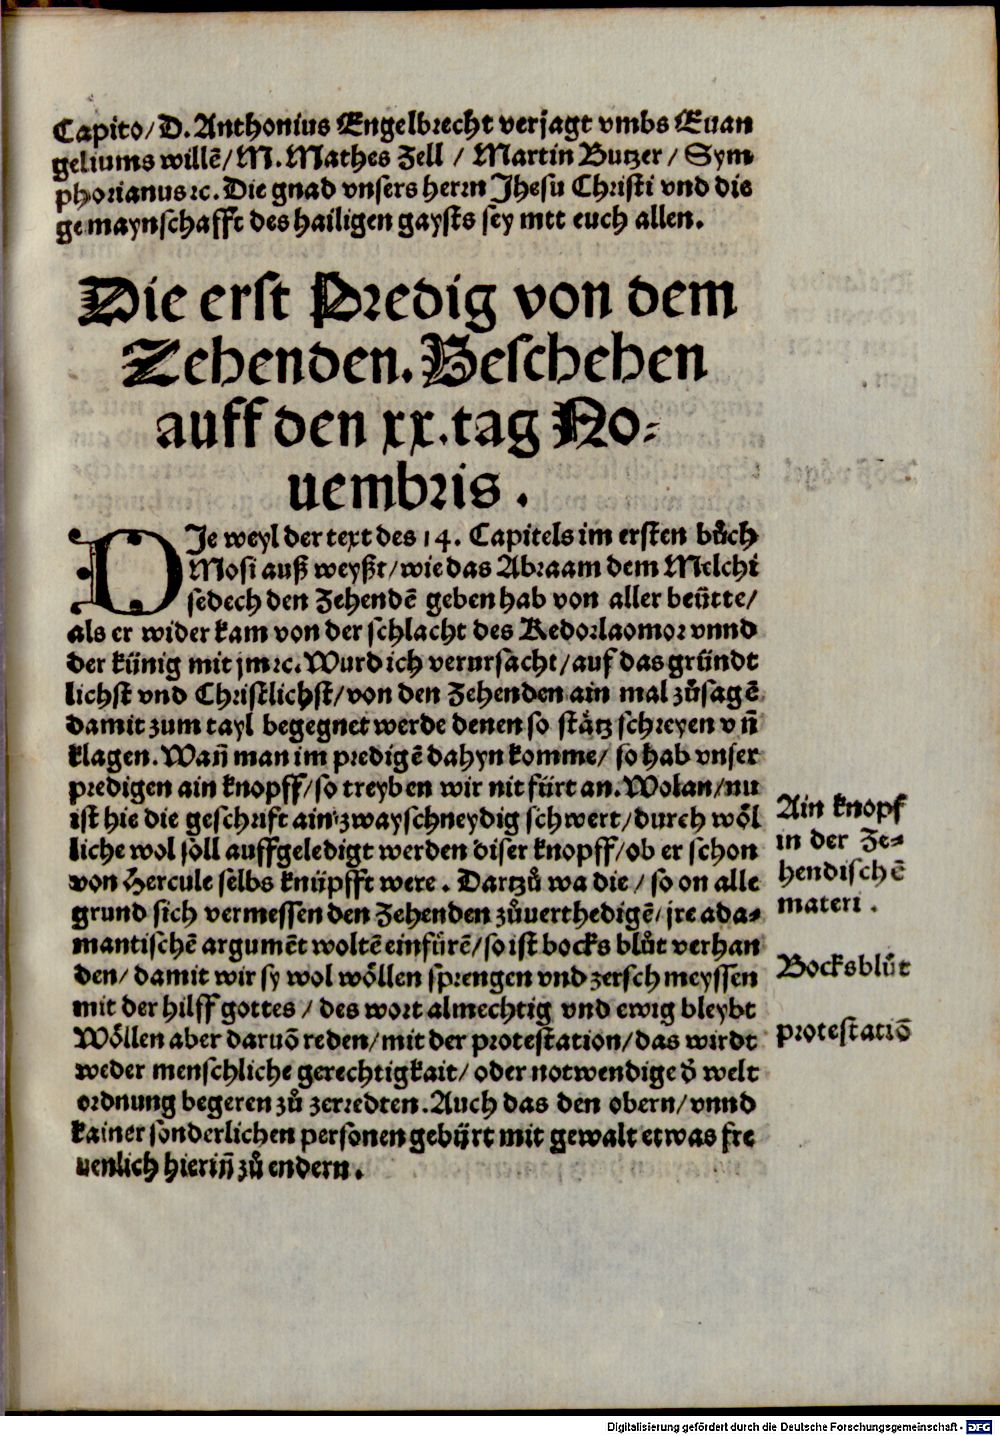 Capito/ D. Anthonius Engelbrecht verjagt vmbs Euan
geliums willē/ M. Mathes Zell / Martin Butzer / Sym
phorianus ꝛc. Die gnad vnsers herrn Jhesu Christi vnd die
gemaynschafft des hailigen gaysts sey mit euch allen.
Die erst Predig von dem
Zehenden. Bescheben
auff den xx. tag No⸗
uembris .
DIe weyl der text des 14. Capitels im ersten bůch
Mosi auß weyßt/ wie das Abraam dem Melchi
sedech den Zehendē geben hab von aller beütte/
als er wider kam von der schlacht des Kedorlaomor vnnd
der künig mit jm ꝛc. Wurd ich verursacht/ auf das gründt
lichst vnd Christlichst/ von den Zehenden ain mal zůsagē
damit zum tayl begegnet werde denen so stätz schreyen vñ
klagen. Wañ man im predigē dahyn komme/ so hab vnser
predigen ain knopff/ so treyben wir nit fürt an. Wolan/ nu
ist hie die geschrift ain zwayschneydig schwert/ durch wöl
liche wol soll auffgeledigt werden diser knopff/ ob er schon
von Hercule selbs knüpfft were . Dartzů wa die / so on alle
grund sich vermessen den Zehenden zůuerthedigē/ jre ada⸗
mantischē argumēt woltē einfürē/ so ist bocks blůt verhan
den/ damit wir sy wol wöllen sprengen vnd zerschmeyssen
mit der hilff gottes / des wort almechtig vnd ewig bleybt
Wöllen aber daruō reden/ mit der protestation/ das wirdt
weder menschliche gerechtigkait/ oder notwendige ð welt
ordnung begeren zů zerredten. Auch das den obern/ vnnd
kainer sonderlichen personen gebürt mit gewalt etwas fre
uenlich hieriñ zů endern .
Ain knopf
in der Ze⸗
hendischē
materi .
Bocksblůt
protestatiō
Digitalisierung gefördert durch die Deutsche Forschungsgemeinschaft - DFG